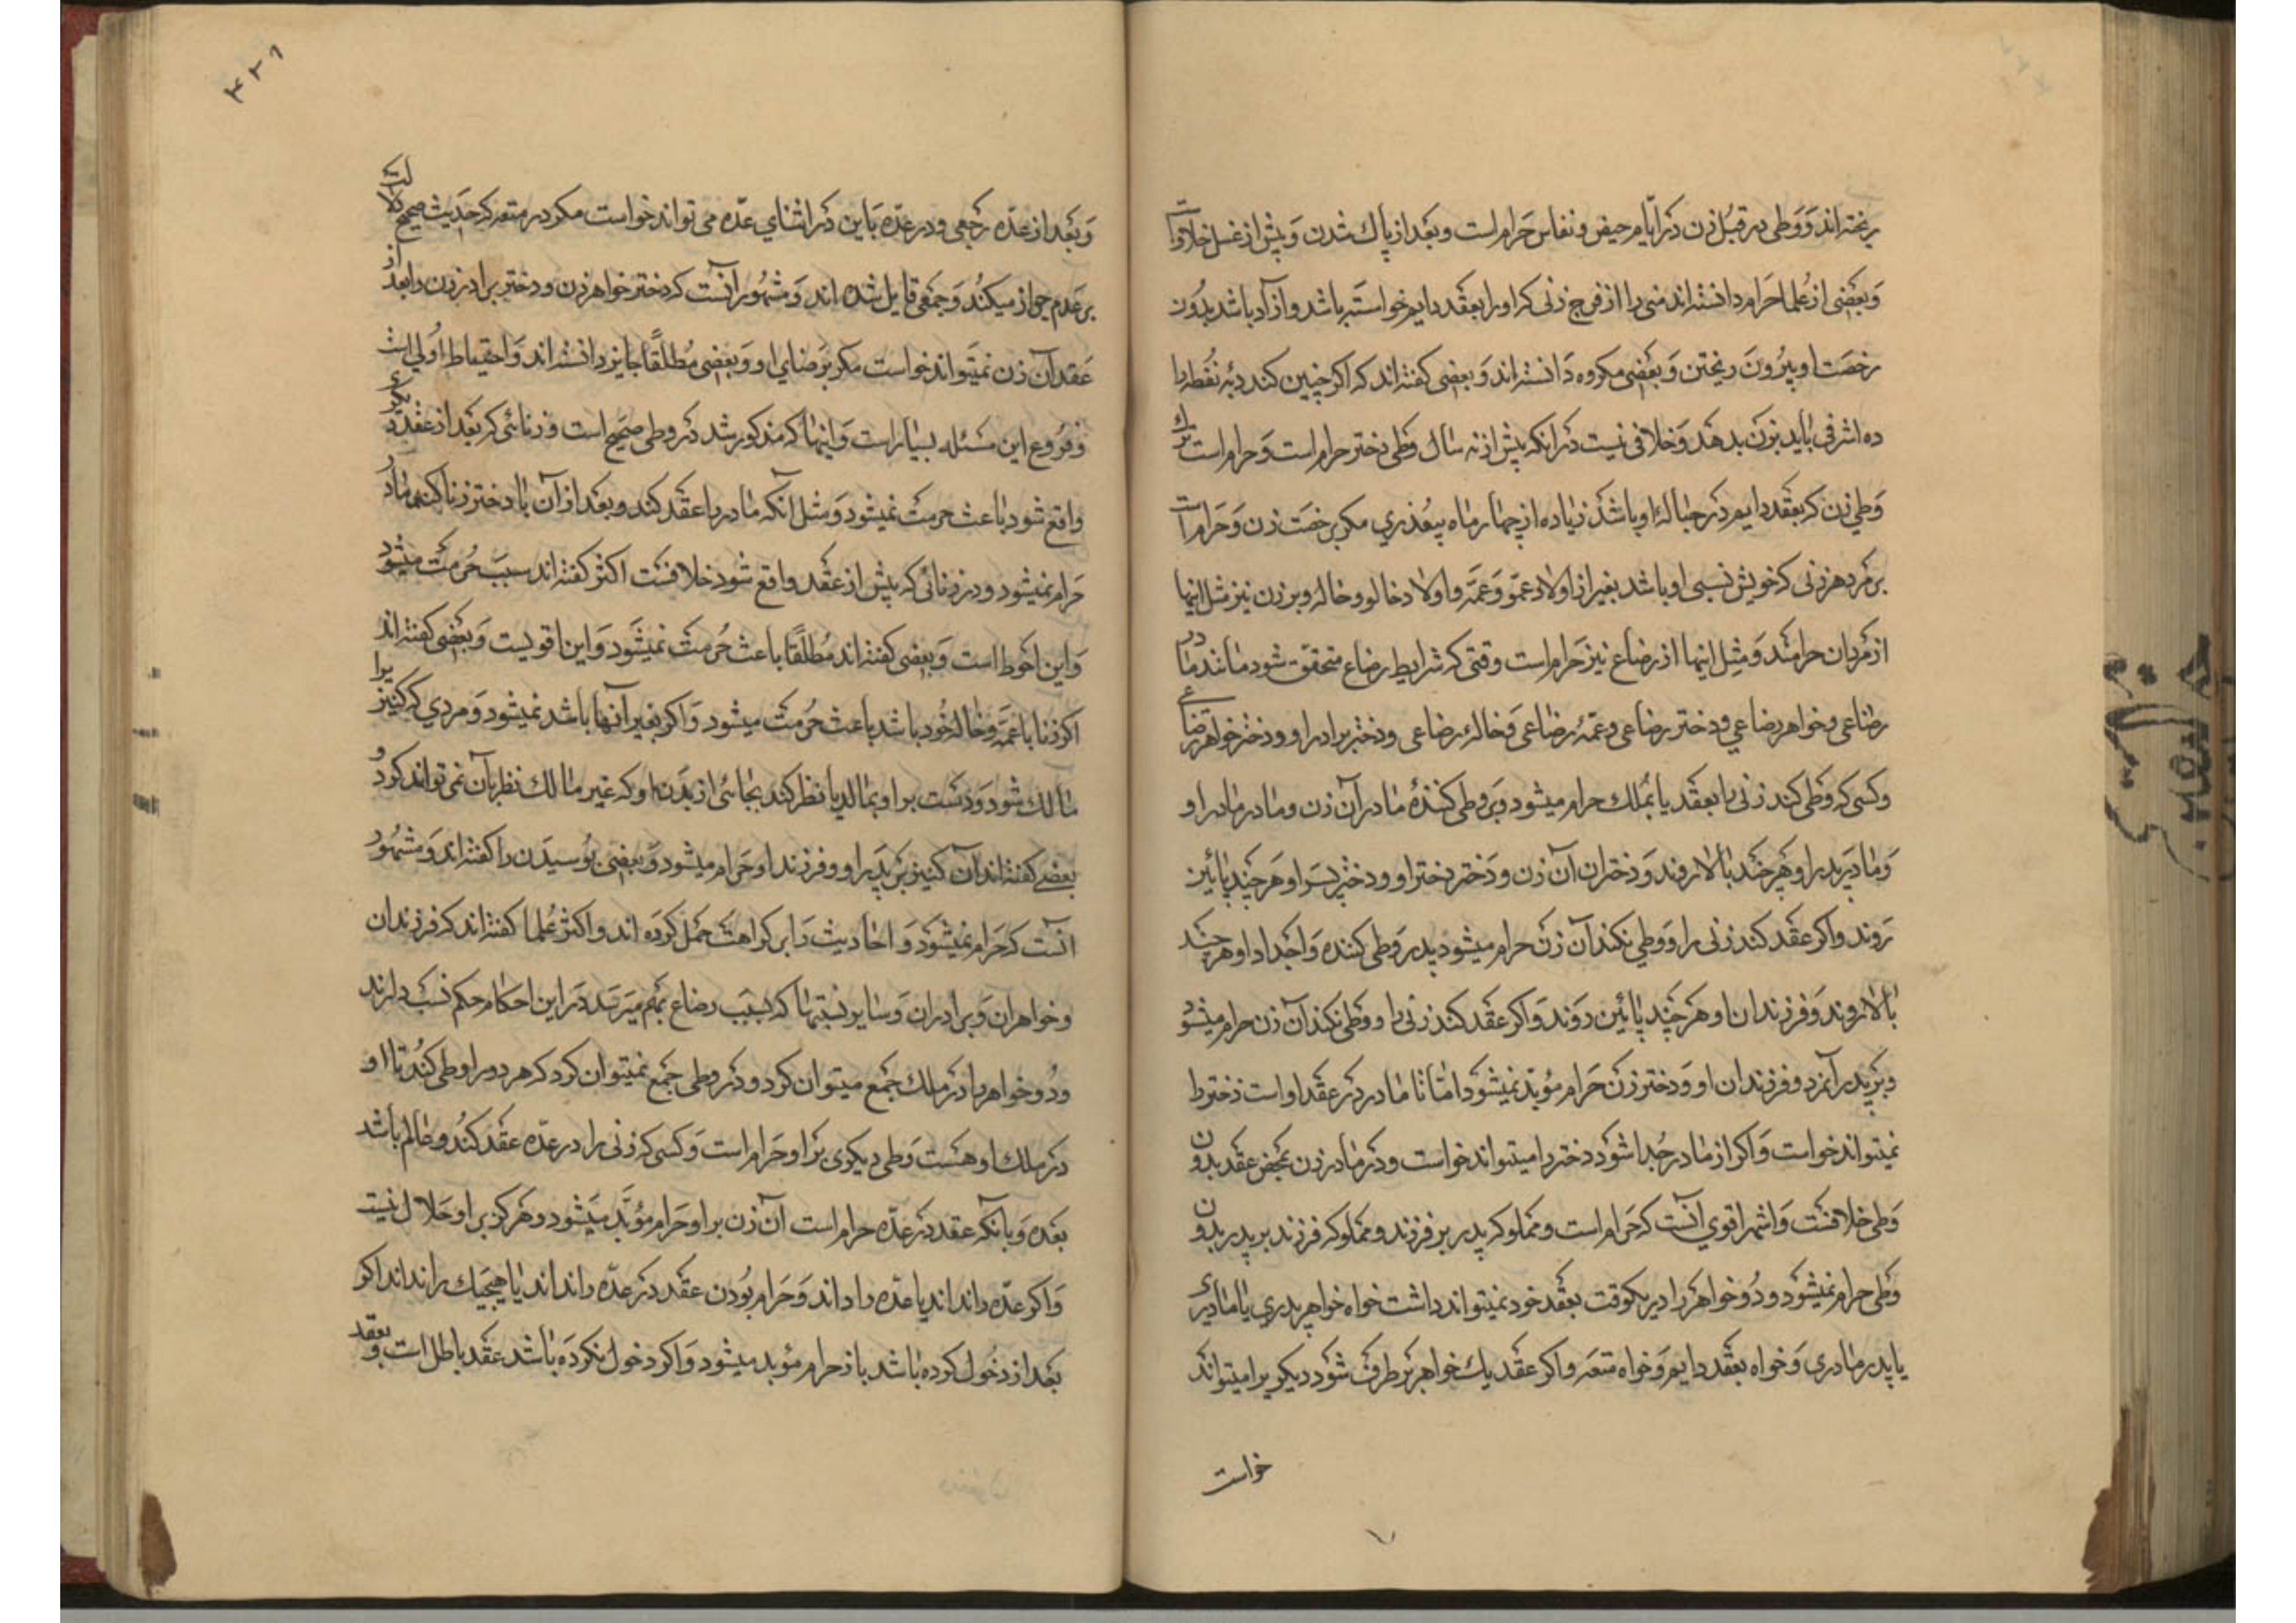 ریخته‌اند و وطی در قبل زن در ایام حیض و نفاس حرام است و بعد از پاك شدن و پیش از غسل خلافست
و بعضی از علما حرام دانسته‌اند منی را از فرج زنی که او را بعقد دایم خواسته باشد و آزاد باشد بدون
رخصت او بیرون ریختن و بعضی مکروه دانسته‌اند و بعضی گفته‌اند که اگر چنین کند دیه نطفه را
ده اشرفی باید بزن بدهد و خلافی نیست در انکه پیش از نه سال وطی دختر حرام است و حرام است ترك
وطی زن که بعقد دایم در حباله او باشد زیاده از چهار ماه بیعذری مگر برخصت زن و حرام است
بر مرد هر زنی که خویش نسبی او باشد بغیر از اولاد عمّو و عمّه و اولاد خالو و خاله و بر زن نیز مثل اینها
از مردان حرامند و مثل اینها از رضاع نیز حرام است وقتی که شرایط رضاع متحقق شود مانند مادر
رضاعی و خواهر رضاعی و دختر رضاعی و عمّه رضاعی و خاله رضاعی و دختر برادر او و دختر خواهر رضاعی
و کسی که وطی کند زنی را بعقد یا بملك حرام میشود بر وطی کننده مادر آن زن و مادر مادر او
و مادر پدر او هر چند بالا روند و دختران آن زن و دختر دختر او و دختر پسر او هر چند پائین
روند و اگر عقد کند زنی را و وطی نکند آن زن حرام میشود پدر وطی کننده و اجداد او هر چند
بالا روند و فرزندان او هر چند پائین روند و اگر عقد کند زنی را و وطی نکند آن زن حرام میشود
بر پدر آنمرد و فرزندان او و دختر زن حرام مؤبّد نمیشود اما تا مادر در عقد او است دختر را
نمیتواند خواست و اگر از مادر جدا شود دختر را میتواند خواست و در مادر زن بمحض عقد بدون
وطی خلافست و اشهر اقوی آنست که حرام است و مملوکه پدر بر فرزند و مملوکه فرزند بر پدر بدون
وطی حرام نمیشود و دو خواهر را در یکوقت بعقد خود نمیتواند داشت خواه خواهر پدری یا مادری
یا پدر مادری و خواه بعقد دایم و خواه متعه و اگر عقد یك خواهر بر طرف شود دیگری را میتواند
خواست
۳۲۱
و بعد از عدّه رجعی و در عدّه باین در اثنای عدّه می تواند خواست مگر در متعه که حدیث صحیح دلالت
بر عدم جواز میکند و جمعی قایل شده اند و مشهور آنست که دختر خواهر زن و دختر برادر زن را بعد از
عقد آن زن نمیتواند خواست مگر برضای او و بعضی مطلقًا جایز دانسته اند و احتیاط اولی است
و فروع این مسئله بسیار است و اینها که مذکور شد در وطی صحیح است و زنائی که بعد از عقد دیگری
واقع شود باعث حرمت نمیشود و مثل آنکه مادر را عقد کند و بعد از آن با دختر زنا کند مادر
حرام نمیشود و در زنائی که پیش از عقد واقع شود خلافست اکثر گفته‌اند سبب حرمت میشود
و این احوط است و بعضی گفته‌اند مطلقًا باعث حرمت نمیشود و این اقویست و بعضی گفته‌اند
اگر زنا با عمّه و خاله خود باشد باعث حرمت میشود و اگر بغیر آنها باشد نمیشود و مردی که کنیزیرا
مالك شود و دست بر او بمالد یا نظر کند بجائی از بدن او که غیر مالك نظر بآن نمی تواند کرد و
بعضی گفته‌اند آن کنیز بر پدر او و فرزند او حرام میشود و بعضی بوسیدن را گفته‌اند و مشهور
آنست که حرام نمیشود و احادیث را بر کراهت حمل کرده اند و اکثر علما گفته‌اند که فرزندان
و خواهران و برادران و سایر نسبتها که بسبب رضاع بهم میرسد در این احکام حکم نسب دارند
و دو خواهر را در ملك جمع میتوان کرد و در وطی جمع نمیتوان کرد که هر دو را وطی کند تا او
در ملك او هست وطی دیگری بر او حرام است و کسی که زنی را در عدّه عقد کند و عالم باشد
بعده و بآنکه عقد در عدّه حرام است آن زن بر او حرام مؤبّد میشود و هرگز بر او حلال نیست
و اگر عدّه داند اند یا عدّه را داند و حرام بودن عقد در عدّه را نداند یا هیچیك را نداند اگر
بعد از دخول کرده باشد باز حرام مؤبد میشود و اگر دخول نکرده باشد عقد باطل است و بعقد